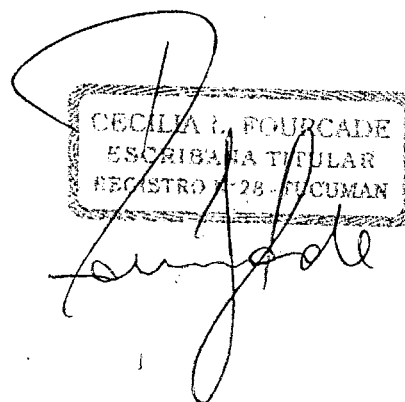 CECILIA L. FOURCADE
ESCRIBANA TITULAR
REGISTRO Nº 28 - TUCUMAN
Fourcade